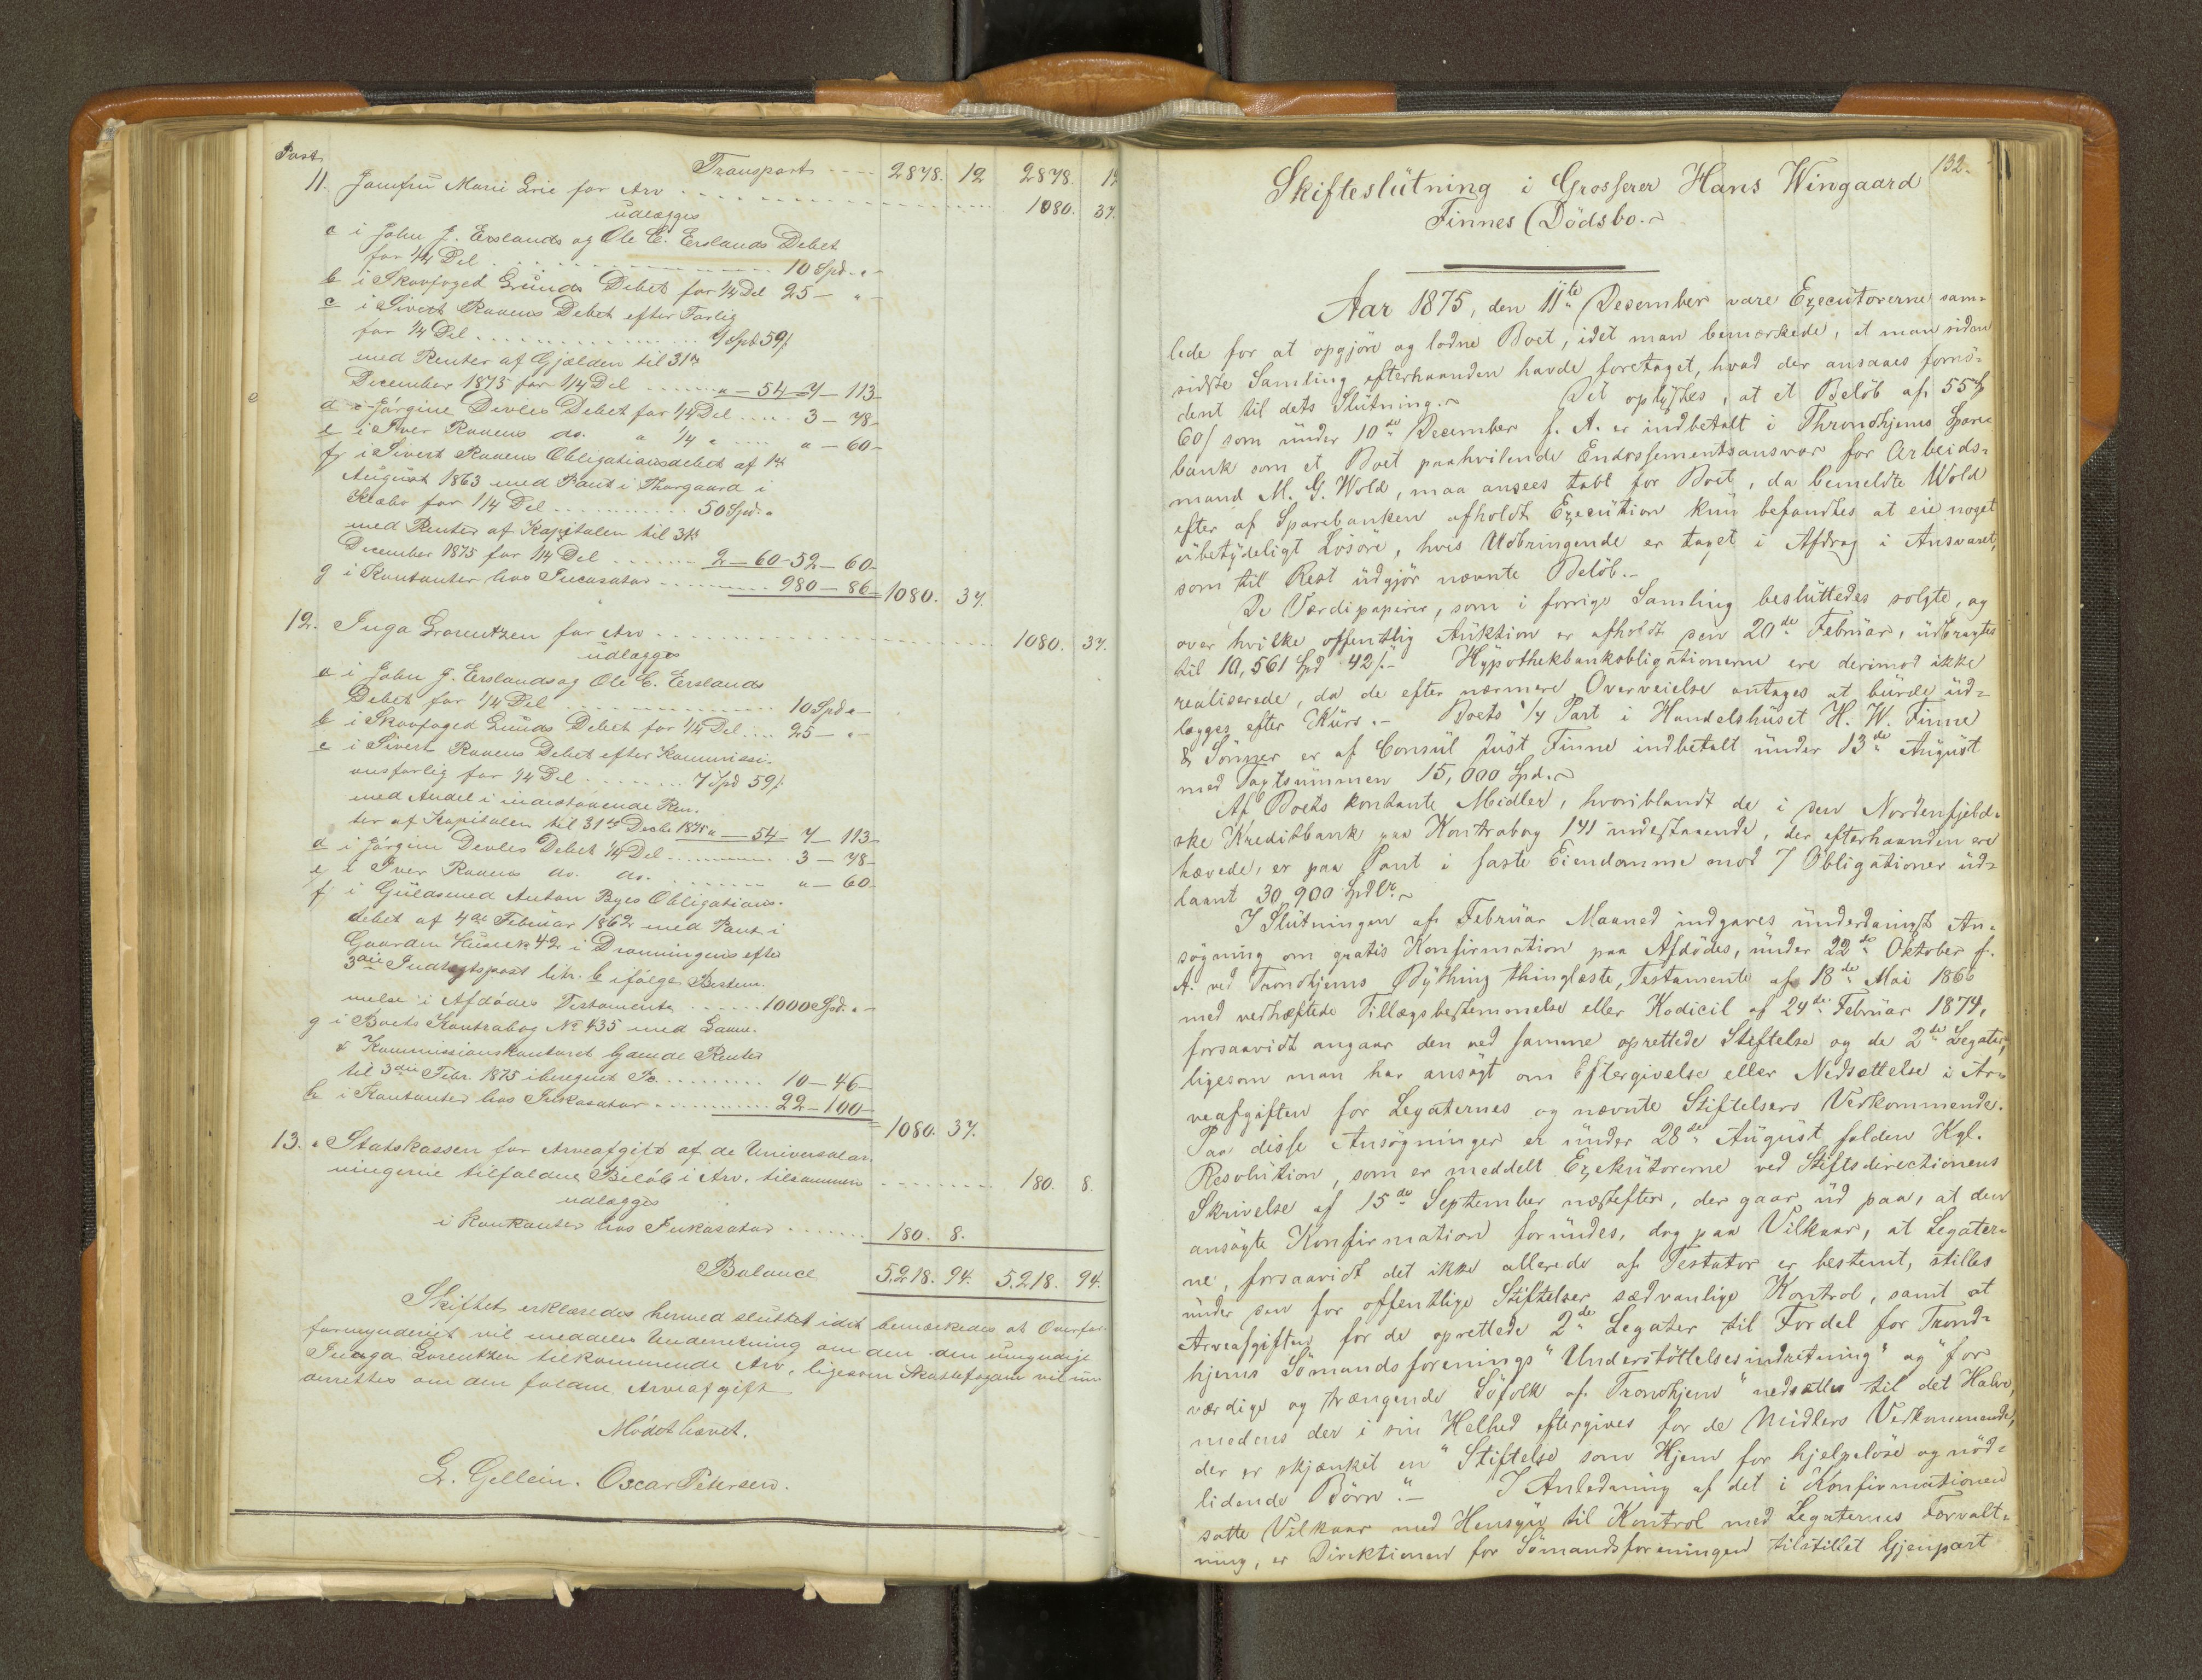 Post
Transport .... 2878. 12 2878. 12
11. Jomfru Marie Lorie for Arv ........ 1080. 37.
udlægges
a i John J. Erslands og Ole E. Erslands Debet
for 1/4 Del ........ 10 Spd. "
b i Skovfoged Lunds Debet for 1/4 Del 25 — "
c i Sivert Raaens Debet efter Forlig
for 1/4 Del ........ 7 Spd 59 ß
med Renter af Gjælden til 31te
December 1875 for 1/4 Del ...... " — 54 7 — 113
d i Jörgine Devles Debet for 1/4 Del ..... 3 — 78
e i Iver Raaens do. " 1/4 " ..... " — 60
f i Sivert Raaens Obligationsdebet af 14
August 1863 med Pant i Thorgaard i
Klæbo for 1/4 Del ........ 50 Spd. "
med Renter af Kapitalen til 31te
December 1875 for 1/4 Del ...... 2 — 60 — 52 — 60
g i Kontanter hos Incasator ....... 980 — 86 = 1080. 37.
12. Inga Lorentzen for Arv ........ 1080. 37.
udlægges
a i John J. Erslands og Ole E. Erslands
Debet for 1/4 Del ........ 10 Spd "
b i Skovfoged Lunds Debet for 1/4 Del .... 25 — "
c i Sivert Raaens Debet efter Kommissi-
onsforlig for 1/4 Del ........ 7 Spd 59 ß
med Andel i indestaaende Ren-
ter af Kapitalen til 31te Decbr 1875 " — 54 7 — 113
d i Jörgine Devles Debet 1/4 Del ........ 3 — 78
e i Iver Raaens do. do. ........ " — 60
f i Guldsmed Anton Byes Obligations-
debet af 4de Februar 1862 med Pant i
Gaarden 42 i Dronningens efter
3die Indtægtspost litr. b ifölge Bestem-
melse i Afdödes Testamente ...... 1000 Spd. "
g i Boets Kontrabog No 435 med Laane-
& Kommissionskontoret Renter
til 3die Febr. 1875 iberegnet ........ 10 — 46
h i Kontanter hos Inkasator ........ 22 — 100
= 1080. 37.
13. Statskassen for Arveafgift af de Universalar-
vingerne tilfaldne Belöb i Arv, tilsammen ........ 180. 8.
udlægges
i Kontanter hos Inkasator ...... 180. 8.
Balance 5218. 94. 5218. 94.
Skiftet erklæredes hermed sluttet idet bemærkedes at Overfor-
mynderiet vil meddeles Underretning om den den umyndige
Inga Lorentzen tilkommende Arv, ligesom Skattefogden vil un-
derrettes om den faldne Arveafgift
Mödet hævet.
L. Gellein. Oscar Petersen.
132.
Skifteslutning i Grosserer Hans Wingaard
Finnes Dödsbo.
Aar 1875, den 11te Desember vare Executorerne sam-
lede for at opgjöre og lodne Boet, idet man bemærkede, at man siden
sidste Samling efterhaanden havde foretaget, hvad der ansaaes fornö-
dent til dets Slutning. Det oplystes, at et Belöb af 55
60 ß som under 10de December f. A. er indbetalt i Throndhjems Spare-
bank som et Boet paahvilende Endossementsansvar for Arbeids-
mand M. G. Wold, maa ansees tabt for Boet, da bemeldte Wold
efter af Sparebanken afholdt Execution kun befandtes at eie noget
ubetydeligt Lösöre, hvis Udbringende er taget i Afdrag i Ansvaret,
som til Rest udgjör nævnte Belöb.—
De Værdipapirer, som i forrige Samling besluttedes solgte, og
over hvilke offentlig Auktion er afholdt den 20de Februar, udbragtes
til 10,561 Spd 42 ß.— Hypothekbankobligationerne ere derimod ikke
realiserede, da de efter nærmere Overveielse antages at burde ud-
lægges efter Kurs.— Boets 1/4 Part i Handelshuset H. W. Finne
& Sönner er af Consul Just Finne indbetalt under 13de August
med Taxtsummen 15,000 Spd.
Af Boets kontante Midler, hvoriblandt de i den Nordenfjeld-
ske Kreditbank paa Kontrabog 141 indestaaende, der efterhaanden ere
hævede, er paa Pant i faste Eiendomme mod 7 Obligationer ud-
laant 30,900 Spdlr.
I Slutningen af Februar Maaned indgaves underdanigst An-
søgning om gratis Konfirmation paa Afdödes, under 22de Oktober f.
A. ved Trondhjems Bything thinglæste, Testamente af 18de Mai 1866
med vedhæftede Tillægsbestemmelse eller Kodicil af 24de Februar 1874,
forsaavidt angaar den ved samme oprettede Stiftelse og de 2de Legater,
ligesom man har ansögt om Eftergivelse eller Nedsættelse i Ar-
veafgiften for Legaternes og nævnte Stiftelsers Vedkommende.
Paa disse Ansögninger er under 28de August falden Kgl.
Resolution, som er meddelt Exekutorerne ved Stiftsdirectionens
Skrivelse af 15de September næstefter, der gaar ud paa, at den
ansögte Konfirmation forundes, dog paa Vilkaar, at Legater-
ne, forsaavidt det ikke allerede af Testator er bestemt, stilles
under den for offentlige Stiftelser sædvanlige Kontrol, samt at
Arveafgiften for de oprettede 2de Legater til Fordel for Trond-
hjems Sömandsforenings "Understöttelsesindretning" og "for
værdige og trængende Söfolk af Trondhjem" nedsættes til det Halve,
medens der i sin Helhed eftergives for de Midlers Vedkommende,
der er skjænket en "Stiftelse som Hjem for hjelpelöse og nöd-
lidende Börn."— I Anledning af det i Konfirmationen
satte Vilkaar med Hensyn til Kontrol med Legaternes Forvalt-
ning, er Direktionen for Sömandsforeningen tilstillet Gjenpart